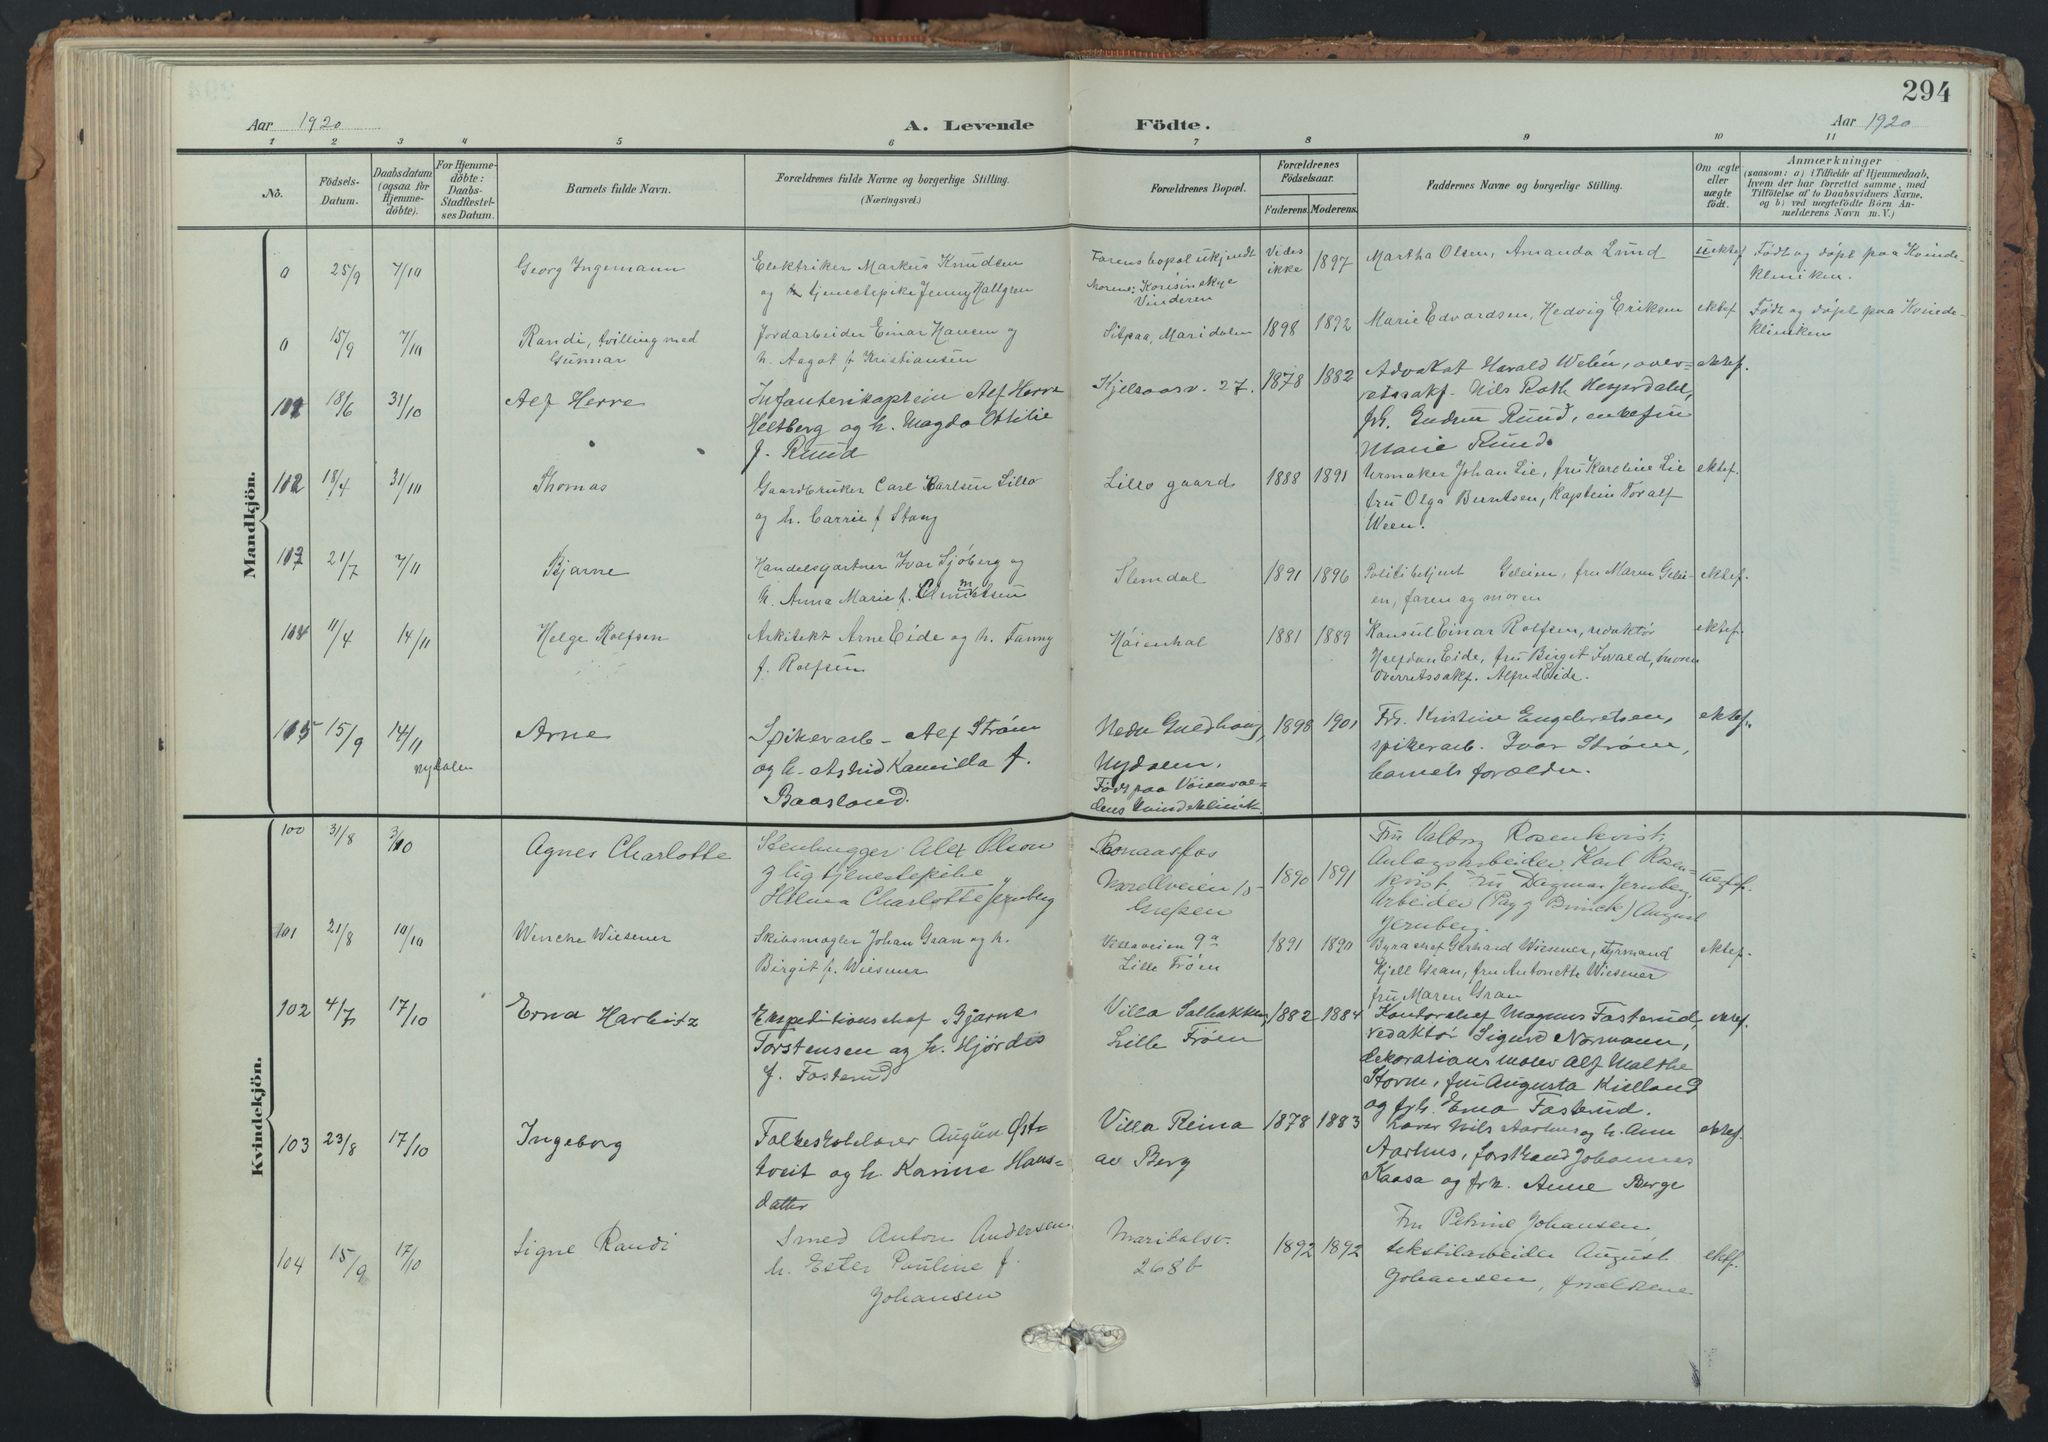 294
Aar 1920
A. Levende
Födte.
Aar 1920
1 2 3 4 5 6 7 8 9 10 11
No.
Födsels-
Datum.
Daabsdatum
(ogsaa for
Hjemme-
döbte).
For Hjemme-
döbte:
Daabs-
Stadfæstel-
ses Datum.
Barnets fulde Navn.
Forældrenes fulde Navne og borgerlige Stilling.
(Næringsvei.)
Forældrenes Bopæl.
Forældrenes
Födselsaar.
Faderens. Moderens.
Faddernes Navne og borgerlige Stilling.
Om ægte
eller
uægte
födt.
Anmærkninger
(saasom: a) i Tilfælde af Hjemmedaab,
hvem der har forrettet samme, med
Tilföielse af to Daabsvidners Navne,
og b) ved uægtefödte Börn An-
melderens Navn m. V.)
Mandkjön.
0 25/9 7/10 Georg Ingemann
Elektriker Markus Knudsen
og tjenestepike Jenny Hallgren
Farens bopæl ukjendt
Morens: Korisinskye
Vinderen
Vides
ikke
1897
Martha Olsen, Amanda Lund
uektef
Født og døpt paa Kvinde-
kliniken.
0 15/9 7/10 Randi, tvilling med
Gunnar
Jordarbeider Einar Hansen og
h. Aagot f. Kristiansen
Sitpaa, Maridalen
1898 1892
Marie Edvardsen, Hedvig Eriksen
ektef
Født og døpt paa Kvinde-
kliniken
18/6 31/10 Alf Herre
Infanterikaptein Alf Herre
Heltberg og h. Magda Ottilie
f. Ruud
Kjelsaasv. 27.
1878 1882
Advokat Harald Welén, over-
retssakf. Nils Roth Heyerdahl,
frk. Gudrun Ruud, enkefru
Marie Ruud.
ektef.
102 18/4 31/10 Thomas
Gaardbruker Carl Karlsen Lillo
og h. Carrie f. Stang
Lillo gaard
1888 1891
Urmaker Johan Lie, fru Karoline Lie
fru Olga Berntsen, Kaptein Toralf
Ween.
ektef.
103 21/7 7/11 Bjarne
Handelsgartner Ivar Sjøberg og
h. Anna Marie f. Clemmetsen
Slemdal
1891 1896
Politibetjent Geleien, fru Maren Gelei-
en, faren og moren
ektef.
104 11/4 14/11 Helge Rolfsen
Arkitekt Arne Eide og h. Fanny
f. Rolfsen
Høienhal
1881 1889
Konsul Einar Rolfsen, redaktør
Halfdan Eide, fru Birgit Ivald, moren
Overretssakf. Alfred Eide.
ektef.
105 15/9 14/11 Arne
Nydalen
Spikerarb. Alf Strøm
og h. Astrid Kamilla f.
Baasland.
Nedre Guldhaug,
Nydalen.
Født paa Vøienvol-
dens Kvindeklinik.
1898 1901
Frk. Kristine Engebretsen,
spikerarb. Ivar Strøm,
barnets forældre.
ektef.
Kvindekjön.
100 31/8 3/10 Agnes Charlotte
Stenhugger Alex Olson
og tjenestepike
Hilma Charlotte Jernberg
Raanaasfos
Morellveien 15
Grefsen
1890 1891
Fru Valborg Rosenkvist,
Anlægsarbeider Karl Rosen-
kvist, Fru Dagmar Jernberg,
Arbeider August
Jernberg.
101 21/8 10/10 Wenche Wiesener
Skibsmegler Johan Gran og h.
Birgit f. Wiesener
Villaveien 9a
Lille Frøen
1891 1890
Byråchef Gerhard Wiesener, styrmand
Kjell Gran, fru Antonette Wiesener
fru Maren Gran
ektef.
102 4/7 17/10 Erna Harbitz
Ekspeditionschef Bjarne
Torstensen og h. Hjørdis
f. Fosterud
Villa Solbakken,
Lille Frøen
1882 1884
Kontorchef Magnus Fosterud,
redaktør Sigurd Normann,
dekorationsmaler Alf Malthe
Hovne, fru Augusta Kielland
og frk. Erna Fosterud.
103 23/8 17/10 Ingeborg
Folkeskolelærer Augun Øst-
tveit og h. Karine Hans-
datter
Villa Reina
av Berg
1878 1883
Lærer Nils Aarhus og h. Ann
Aarhus, forstkand. Johannes
Kaasa og frk. Anne Berge
ektef.
104 15/9 17/10 Signe Randi
Smed Anton Andersen
h. Ester Pauline f.
Johansen
Maridalsv.
268b
1892 1892
Fru Petrine Johansen,
tekstilarbeider August
Johansen, forældrene
ektf.